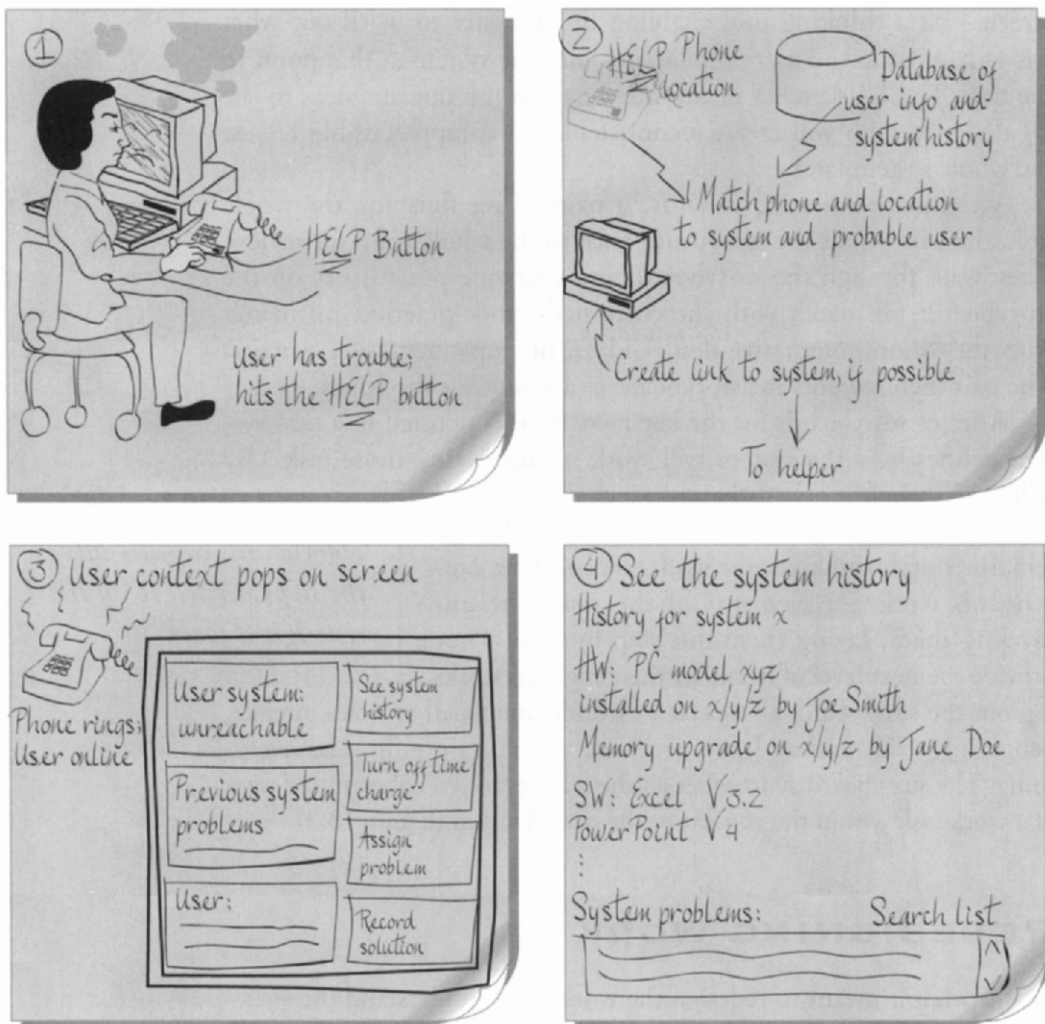 1
HELP Button
User has trouble;
hits the HELP button
2
HELP
Phone
location
Database of
user info and
system history
Match phone and location
to system and probable user
Create link to system, if possible
To helper
3 User context pops on screen
Phone rings;
User online
User system:
unreachable
Previous system
problems
User:
See system
history
Turn off time
charge
Assign
problem
Record
solution
4 See the system history
History for system x
HW: PC model xyz
installed on x/y/z by Joe Smith
Memory upgrade on x/y/z by Jane Doe
SW: Excel V 3.2
PowerPoint V 4
⋮
System problems:
Search list